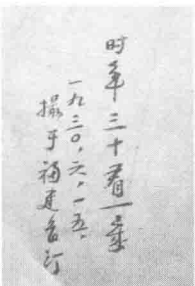 时年三十有一歲
一九三〇，六，一五，
撮于福建長汀